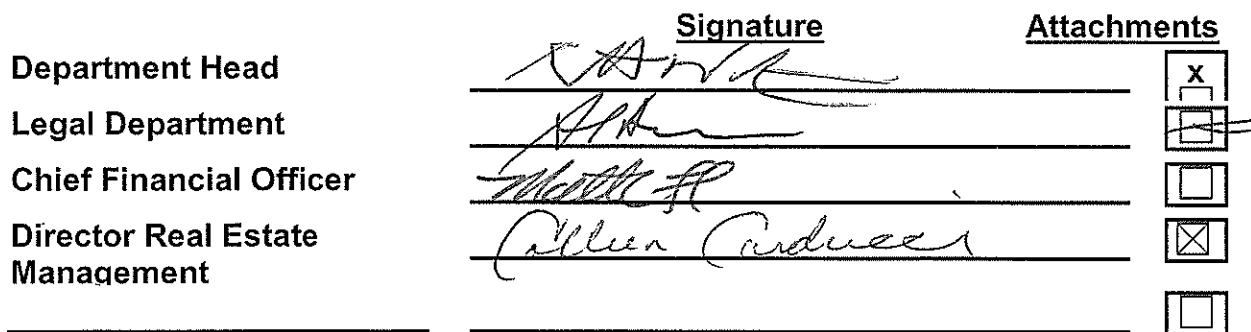 Signature Attachments
Department Head x
Legal Department
Chief Financial Officer
Director Real Estate Colleen Carducci
Management